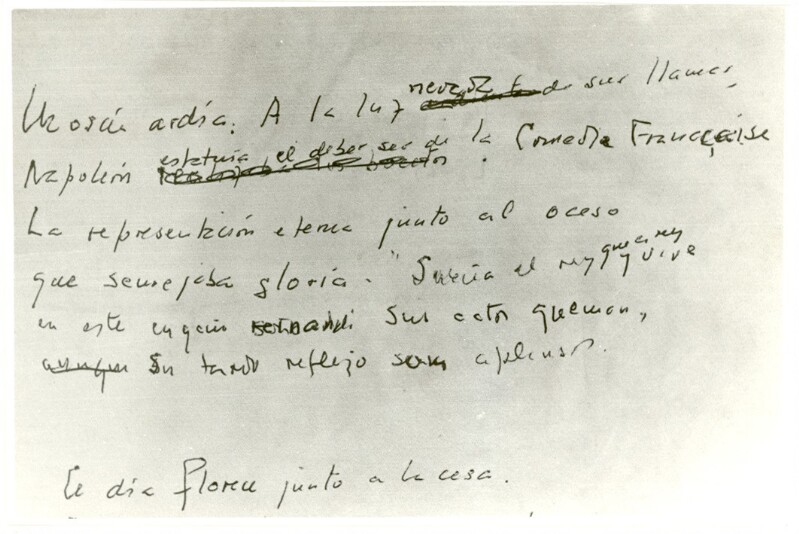 Moscú ardía. A la luz nevada de sus llamas,
Napoleón estatuía el deber ser de la Comedia Française
La representación eterna junto al ocaso
que semejaba gloria. "Sueña el rey que es rey y vive
en este engaño Sus actos queman,
Su tardo reflejo son aplausos.
El día florece junto a la casa.